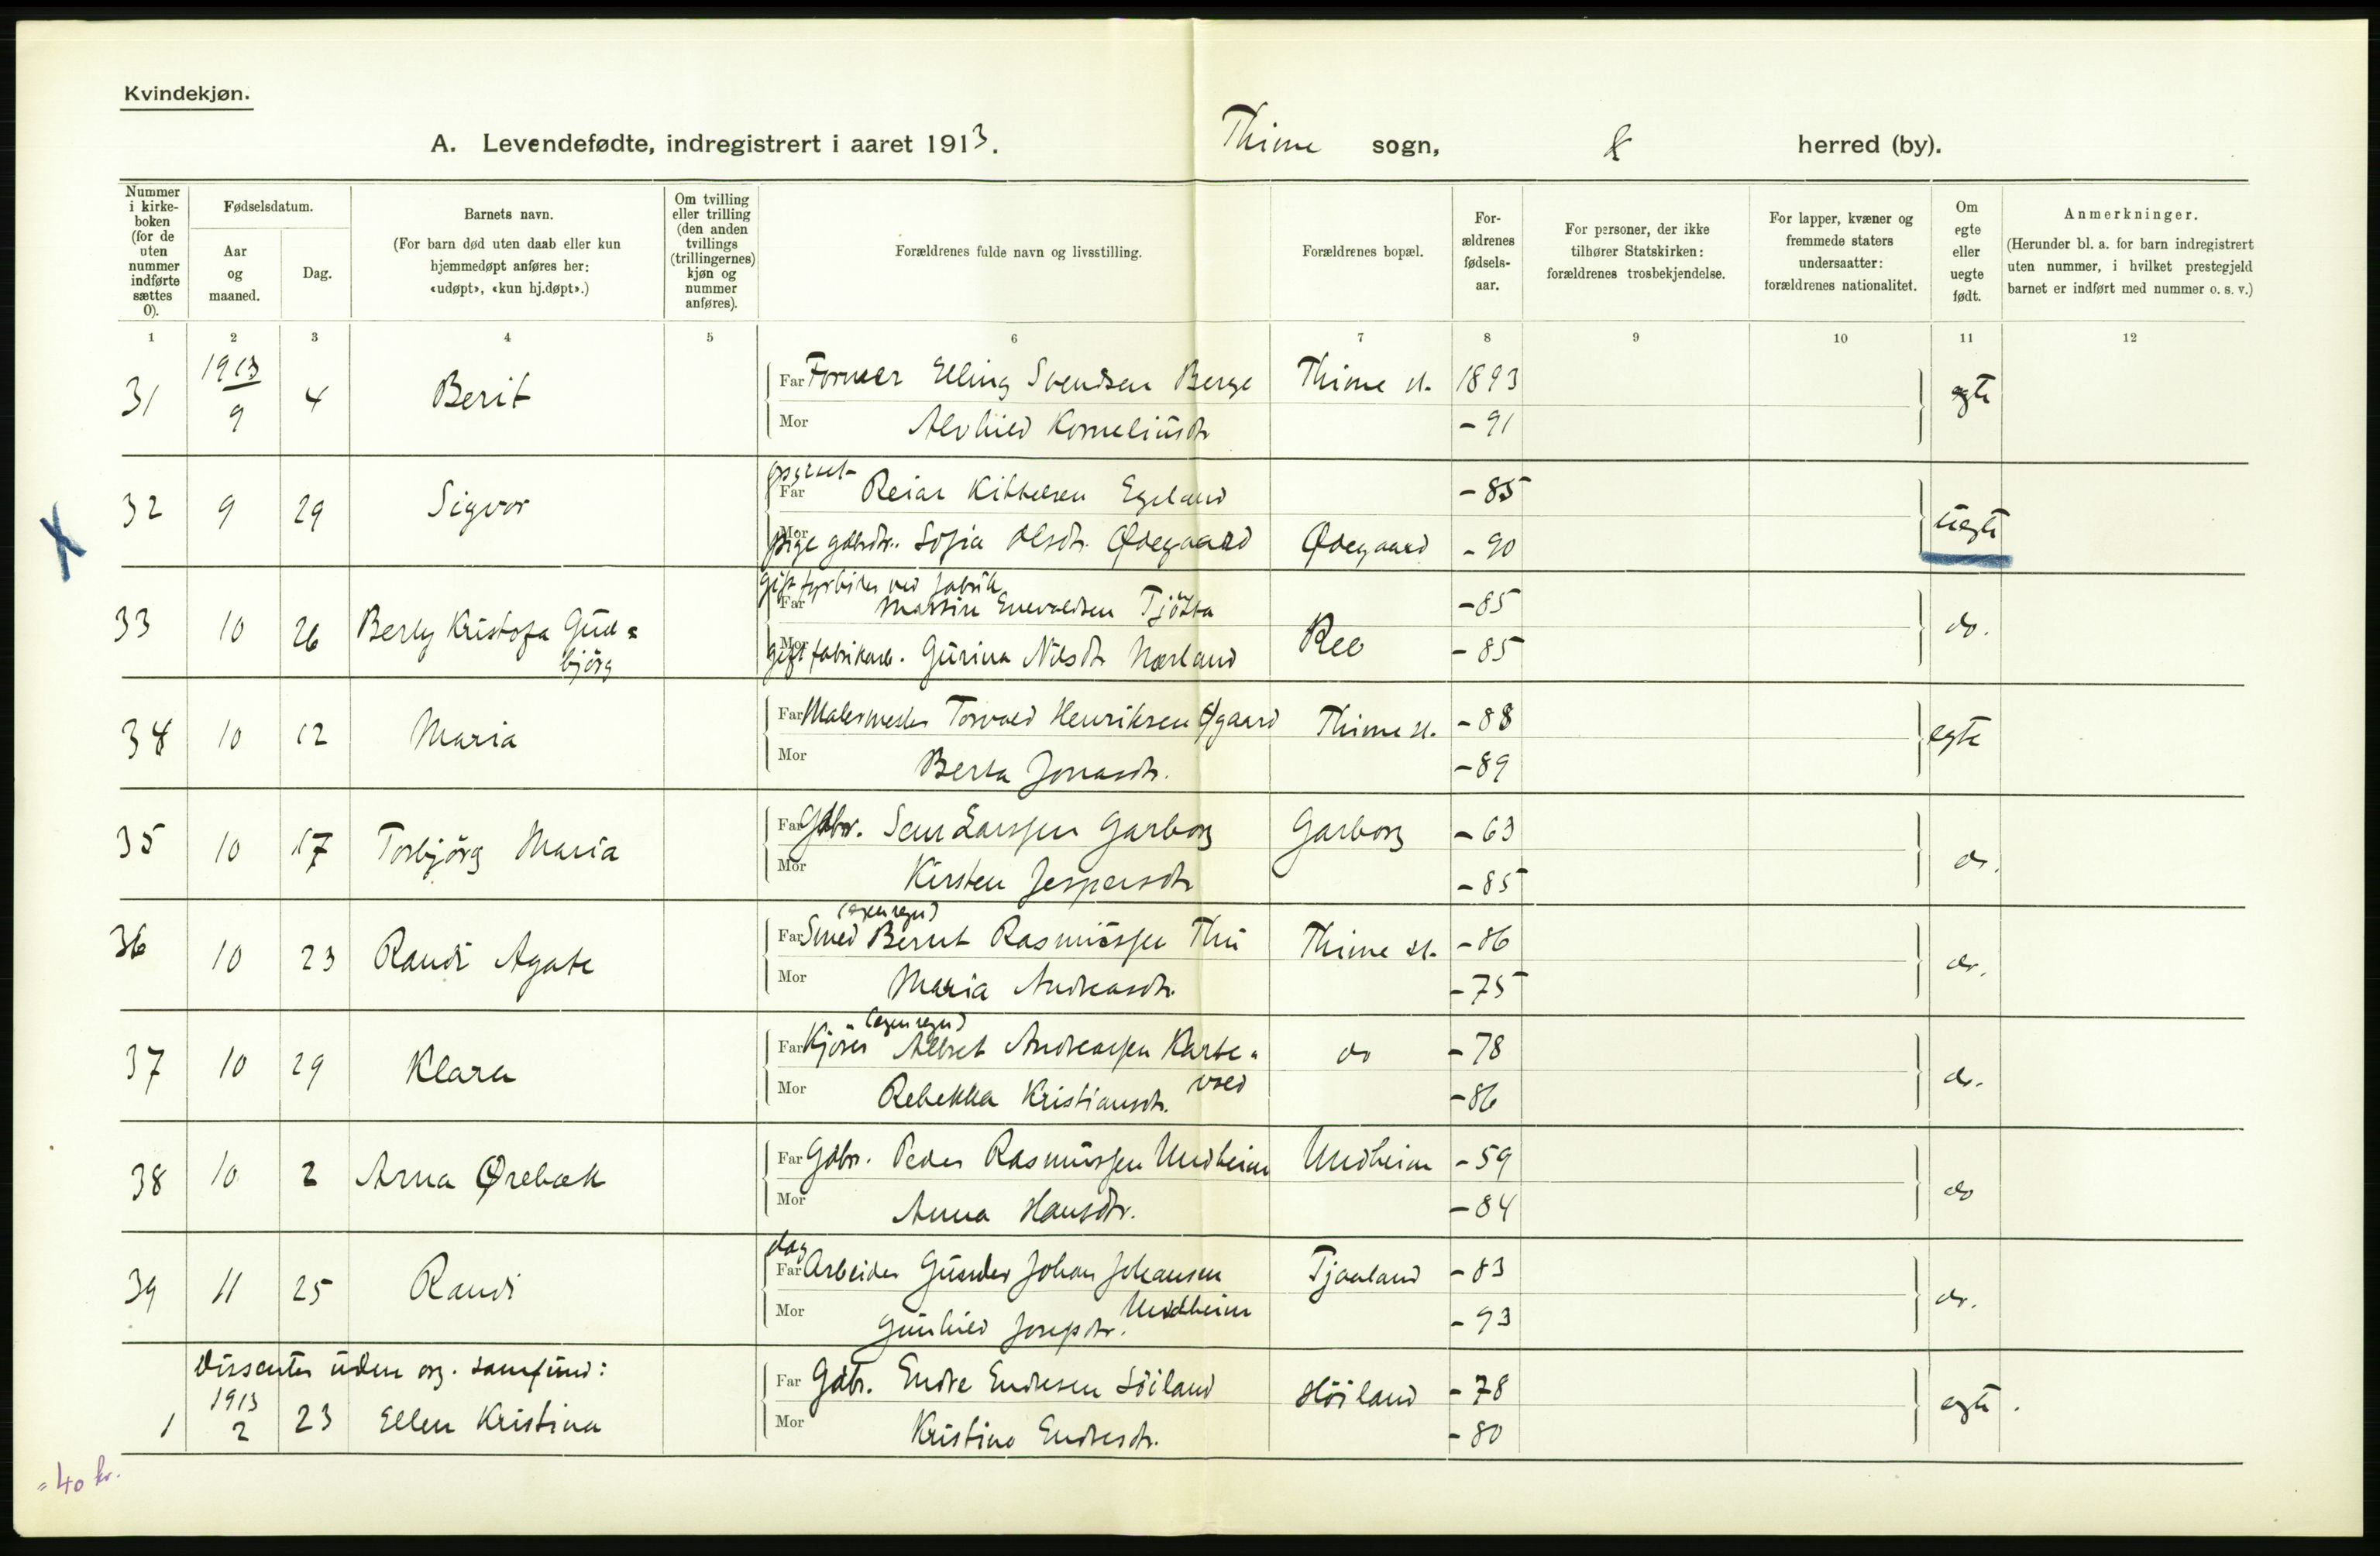 Kvindekjøn.
A. Levendefødte, indregistrert i aaret 1913. Thime sogn, & herred (by).
Nummer i kirke-boken (for de uten nummer indførte sættes 0).
Fødselsdatum.
Aar og maaned.
Dag.
Barnets navn.
(For barn død uten daab eller kun hjemmedøpt anføres her: «udøpt», «kun hj.døpt».)
Om tvilling eller trilling (den anden tvillings (trillingernes) kjøn og nummer anføres).
Forældrenes fulde navn og livsstilling.
Forældrenes bopæl.
For-ældrenes fødsels-aar.
For personer, der ikke tilhører Statskirken: forældrenes trosbekjendelse.
For lapper, kvæner og fremmede staters undersaatter: forældrenes nationalitet.
Om egte eller uegte født.
Anmerkninger.
(Herunder bl. a. for barn indregistrert uten nummer, i hvilket prestegjeld barnet er indført med nummer o. s. v.)
1 2 3 4 5 6 7 8 9 10 11 12
31 1913 9 4 Berit Far Former Elling Svendsen Berge Thime st. 1893 egte
Mor Alvhild Korneliusdtr -91
32 9 29 Sigvor Far Reiar Kittelsen Egeland -85 uegte
Mor pige gdbrdtr. Sofia Olsdtr. Ødegaard Ødegaard -90
33 10 26 Berly Kristofa Gud= björg gift fyrböter ved fabrik Far Martin Enevaldsen Tjötta -85 do.
Mor gift fabrikarb. Gurina Nilsdtr Nærland Ree -85
34 10 12 Maria Far Malermester Torvald Henriksen Thime st. -88 egte
Mor Berta Jonasdtr. -89
35 10 17 Torbjörg Maria Far Gdbr. Larssen Garborg Garborg -63 do.
Mor Kirsten Jespersdtr -85
36 10 23 Randi Agate (egen regn) Far Smed Bernt Rasmussen Thu Thime st. -86 do.
Mor Maria Andreasdtr. -75
37 10 29 Klara (egen regn) Far Kjörer Albret Andreassen Karte= vold do -78 do.
Mor Rebekka Kristiansdtr. -86
38 10 2 Arna Ørebæk Far Gdbr. Peder Rasmussen Undheim Undheim -59 do
Mor Anna Hansdtr. -84
39 11 25 Randi dag Far Arbeider Gunder Johan Johansen Undheim Tjaaland -83 do.
Mor Gunhild Josepdtr. -93
Dissenter uden org. samfund:
1 1913 2 23 Ellen Kristina Far Gdbr. Endre Endresen Söiland Höiland -78 egte.
Mor Kristine Endresdtr. -80
= 40 kv.